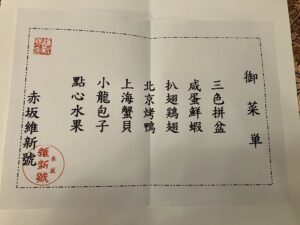 御菜単
三色拼盆
咸蛋鮮蝦
扒翅鶏翅
北京烤鴨
上海蟹貝
小龍包子
點心水果
赤坂維新號
赤坂
維新號